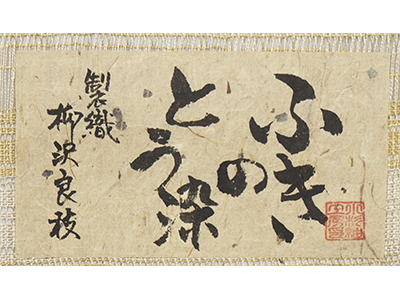 ふきの
とう染
製織
柳沢良枝